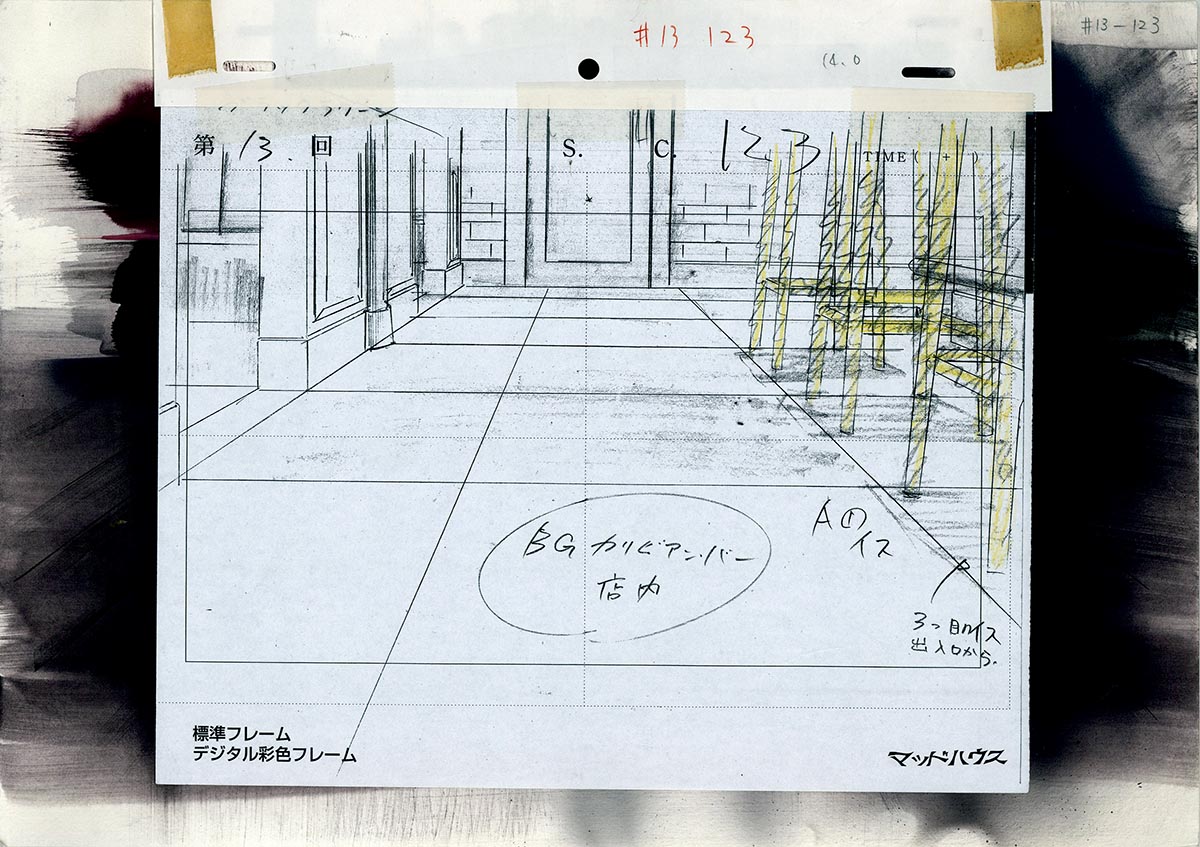 #13 123
#13-123
(4.0
第 13. 回 S. C. 123 TIME ( + )
BG カリビアン・バー
店内
Aの
イス
3つ目のイス
出入口から.
標準フレーム
デジタル彩色フレーム
マッドハウス